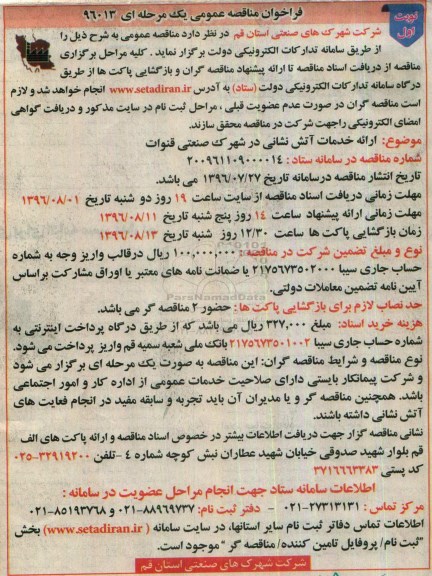 نوبت اول
فراخوان مناقصه عمومی یک مرحله ای ۹۶۰۱۳
شرکت شهرک های صنعتی استان قم در نظر دارد مناقصه عمومی به شرح ذیل را
از طریق سامانه تدارکات الکترونیکی دولت برگزار نماید . کلیه مراحل برگزاری
مناقصه از دریافت اسناد مناقصه تا ارائه پیشنهاد مناقصه گران و بازگشایی پاکت ها از طریق
درگاه سامانه تدارکات الکترونیکی دولت (ستاد) به آدرس www.setadiran.ir انجام خواهد شد و لازم
است مناقصه گران در صورت عدم عضویت قبلی ، مراحل ثبت نام در سایت مذکور و دریافت گواهی
امضای الکترونیکی را جهت شرکت در مناقصه محقق سازند.
موضوع: ارائه خدمات آتش نشانی در شهرک صنعتی قنوات
شماره مناقصه در سامانه ستاد : ۲۰۰۹۶۱۱۰۹۰۰۰۰۱۴
تاریخ انتشار مناقصه در سامانه تاریخ ۱۳۹۶/۰۷/۲۷ می باشد.
مهلت زمانی دریافت اسناد مناقصه از سایت ساعت ۱۹ روز دو شنبه تاریخ ۱۳۹۶/۰۸/۰۱
مهلت زمانی ارائه پیشنهاد ساعت ۱۴ روز پنج شنبه تاریخ ۱۳۹۶/۰۸/۱۱
زمان بازگشایی پاکت ها ساعت ۱۲/۳۰ روز شنبه تاریخ ۱۳۹۶/۰۸/۱۳
نوع و مبلغ تضمین شرکت در مناقصه: ۱۰۰,۰۰۰,۰۰۰ ریال در قالب واریز وجه به شماره
حساب جاری سیبا ۲۱۷۵۶۷۳۵۰۲۰۰۰ یا ضمانت نامه های معتبر یا اوراق مشارکت بر اساس
آیین نامه تضمین معاملات دولتی.
ParsNamadData
حد نصاب لازم برای بازگشایی پاکت ها : حضور ۲ مناقصه گر می باشد.
هزینه خرید اسناد: مبلغ ۳۲۷,۰۰۰ ریال می باشد که از طریق درگاه پرداخت اینترنتی به
شماره حساب جاری سیبا ۲۱۷۵۶۷۳۵۰۱۰۰۲ بانک ملی شعبه سمیه قم واریز پرداخت می شود.
نوع مناقصه و شرایط مناقصه گران: این مناقصه به صورت یک مرحله ای برگزار می شود
و شرکت پیمانکار بایستی دارای صلاحیت خدمات عمومی از اداره کار و امور اجتماعی
باشد. همچنین مناقصه گر و یا مدیران آن باید تجربه و سابقه مفید در انجام فعالیت های
آتش نشانی داشته باشند.
نشانی مناقصه گزار جهت دریافت اطلاعات بیشتر در خصوص اسناد مناقصه و ارائه پاکت های الف
قم بلوار شهید صدوقی خیابان شهید عطاران نبش کوچه شماره ۴ -تلفن ۳۲۹۱۹۲۰۰-۰۲۵
کد پستی ۳۷۱۶۶۶۳۳۸۳
اطلاعات سامانه ستاد جهت انجام مراحل عضویت در سامانه :
مرکز تماس : ۲۷۳۱۳۱۳۱-۰۲۱ - دفتر ثبت نام: ۸۸۹۶۹۷۳۷-۰۲۱ و ۸۵۱۹۳۷۶۸-۰۲۱
اطلاعات تماس دفاتر ثبت نام سایر استانها، در سایت سامانه ( www.setadiran.ir) بخش
"ثبت نام/ پروفایل تامین کننده/ مناقصه گر " موجود است.
شرکت شهرک های صنعتی استان قم